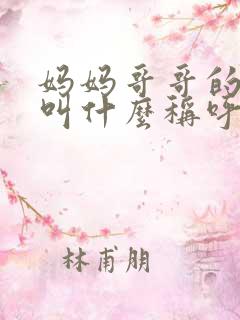 妈妈哥哥的
叫什麼稱呼
林甫朋